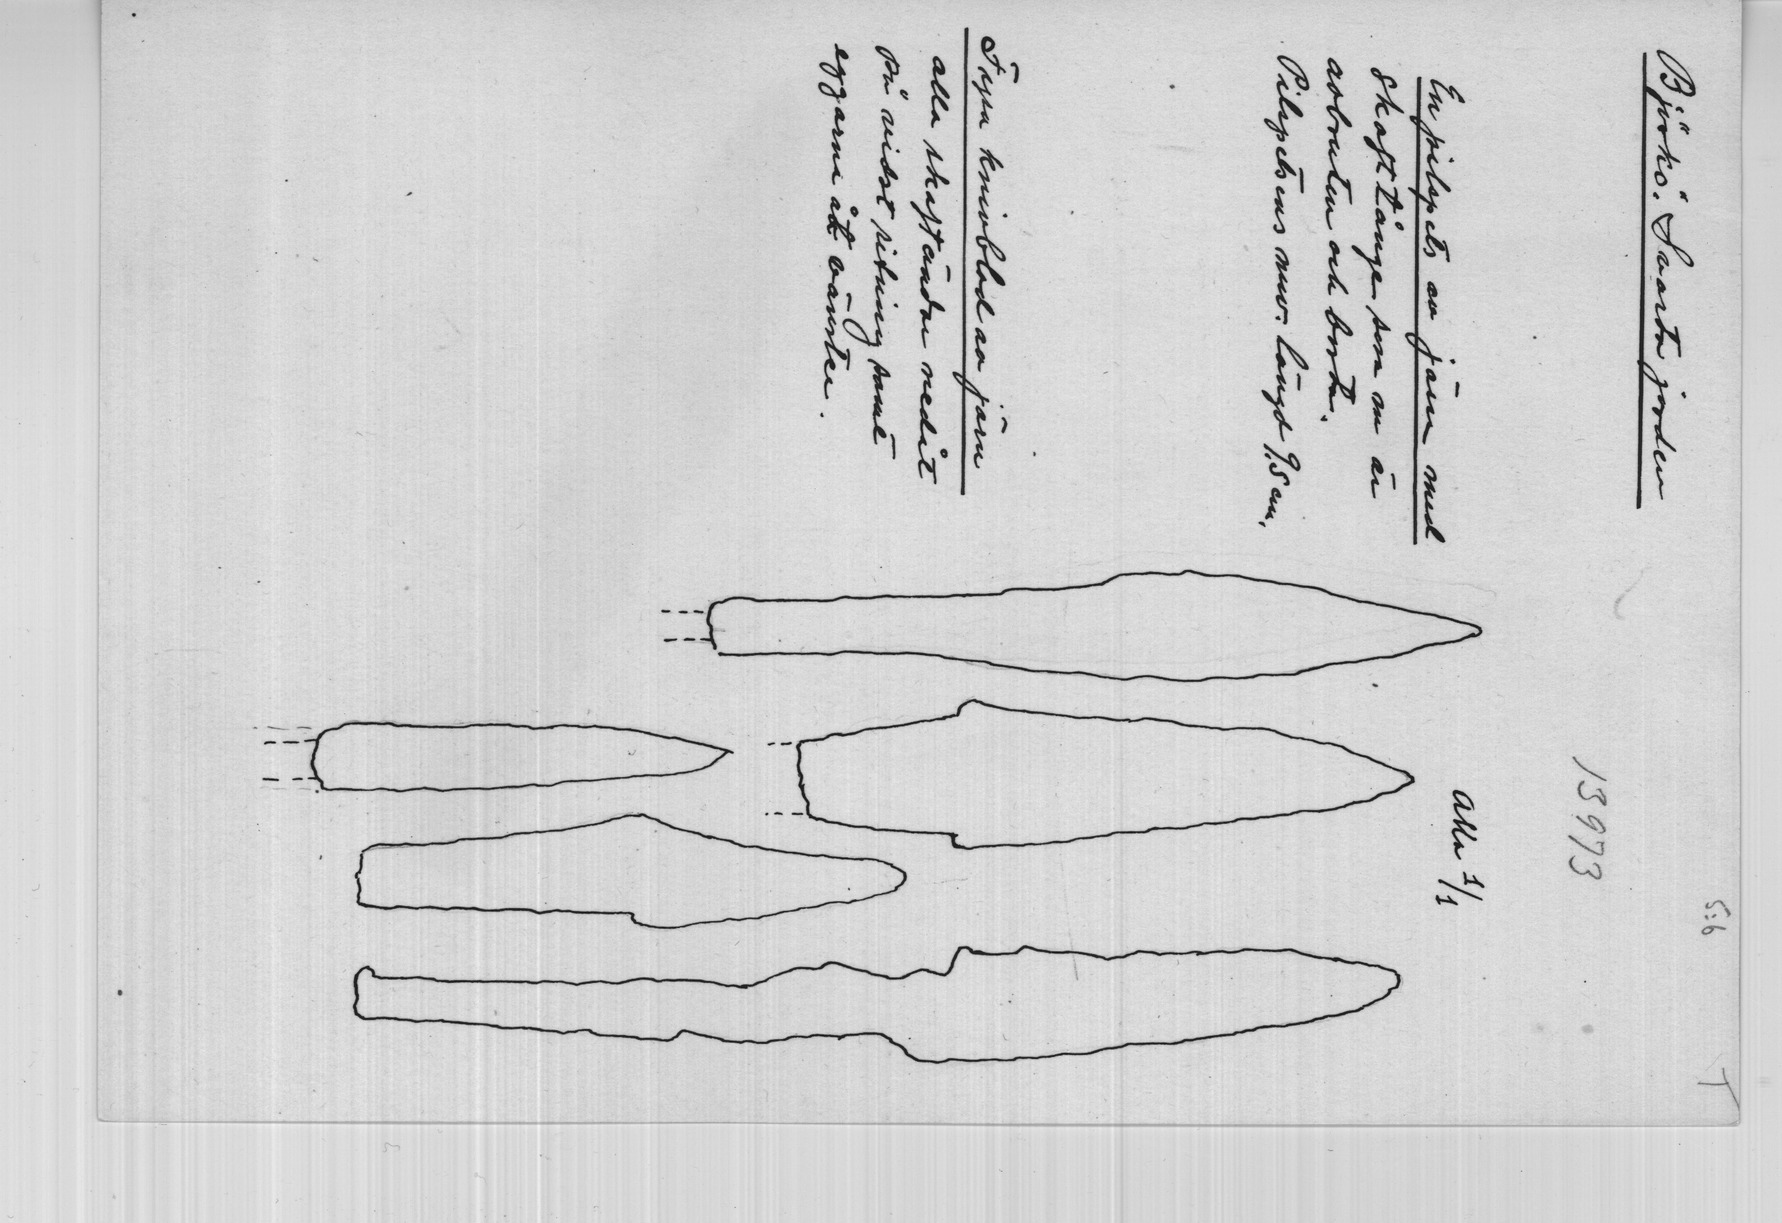 Björkö. Svarta jorden
5:6
T
13973
En pilspets av järn med
skafttånge som nu är
avbruten och borta.
Pilspetsens nuv. längd 9,5 cm.
Alla 1/1
Fyra knivblad av järn
alla skaftändar nedåt
på vidst. ritning samt
eggarna åt vänster.